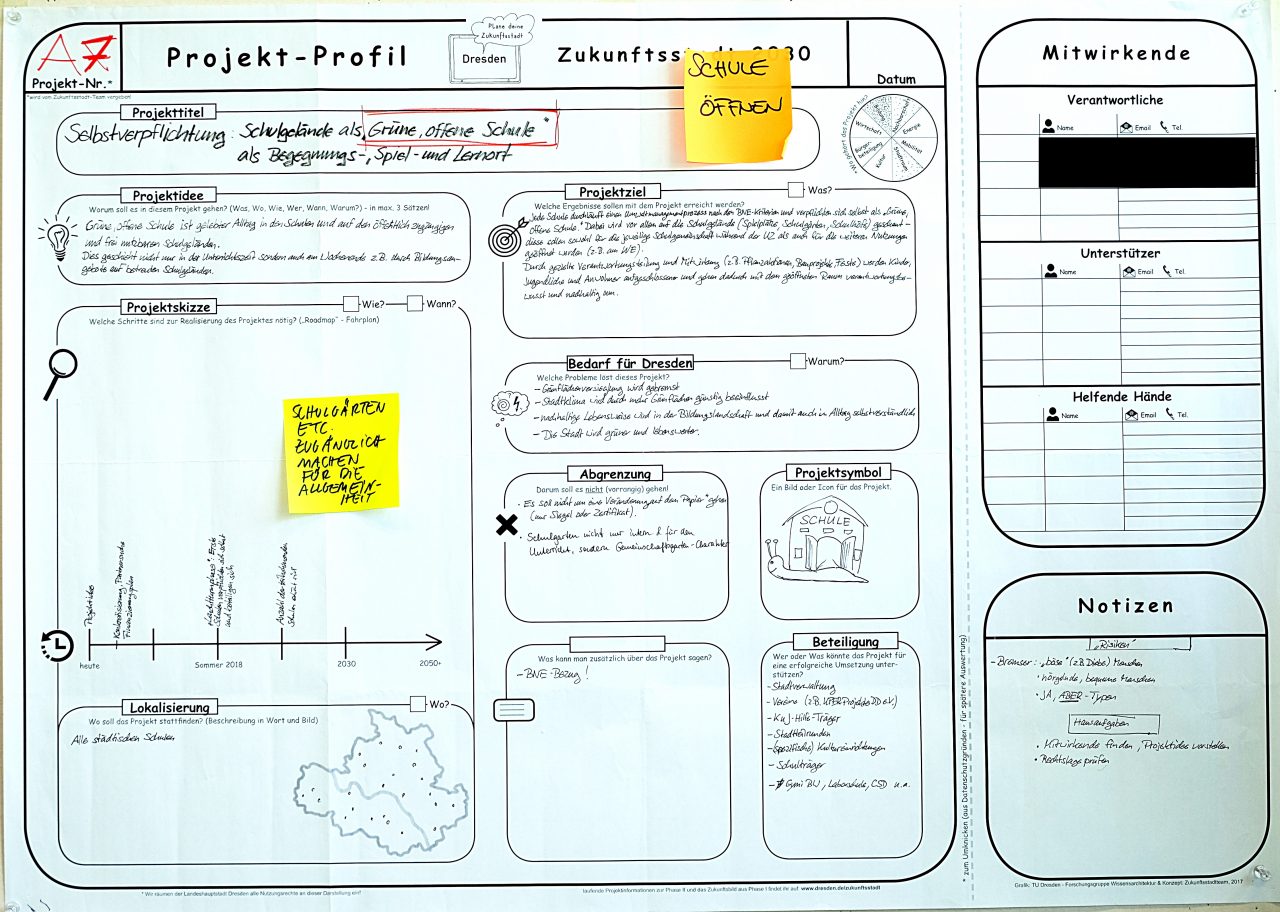 A7
Projekt-Nr.*
*wird vom Zukunftsstadt-Team vergeben!
Projekt-Profil
PLane deine
Zukunftsstadt
Dresden
Zukunftsstadt 2030
Datum
SCHULE
ÖFFNEN
Projekttitel
Selbstverpflichtung: Schulgelände als „Grüne, offene Schule"
als Begegnungs-, Spiel- und Lernort
Wirtschaft
Energie
Mobilität
Kultur
Bürger-
beteiligung
Projektidee
Worum soll es in diesem Projekt gehen? (Was, Wo, Wie, Wer, Wann, Warum?) - in max. 3 Sätzen!
Grüne, offene Schule ist gelebter Alltag in den Schulen und auf den öffentlich zugängigen
und frei nutzbaren Schulgeländen.
Dies geschieht nicht nur in der Unterrichtszeit sondern auch am Wochenende z.B. durch Bildungsan-
gebote auf betreuten Schulgeländen.
Projektskizze
Wie?
Wann?
Welche Schritte sind zur Realisierung des Projektes nötig? („Roadmap" - Fahrplan)
SCHULGÄRTEN
ETC.
ZUGÄNGLICH
MACHEN
FÜR DIE
ALLGEMEIN-
HEIT
Projektidee
Konkretisierung, Partnersuche
Finanzierungsplan
heute
Sommer 2018
2030
2050+
Lokalisierung
Wo?
Wo soll das Projekt stattfinden? (Beschreibung in Wort und Bild)
Alle städtischen Schulen
Projektziel
Was?
Welche Ergebnisse sollen mit dem Projekt erreicht werden?
Jede Schule durchläuft einen nach den BNE-Kriterien und verpflichtet sich selbst als „Grüne,
offene Schule." Dabei wird vor allem auf die Schulgelände (Spielplätze, Schulgärten, Schulhöfe) geschaut -
diese sollen sowohl für die jeweilige Schulgemeinschaft während der UZ als auch für die weiteren Nutzungen
geöffnet werden (z.B. am WE).
Durch gezielte Verantwortungsteilung und Mitwirkung (z.B. Pflanzaktionen, Bauprojekte, Feste) werden Kinder,
Jugendliche und Anwohner aufgeschlossener und gehen dadurch mit dem geöffneten Raum verantwortungsbe-
wusst und nachhaltig um.
Bedarf für Dresden
Warum?
Welche Probleme löst dieses Projekt?
- Grünflächenversieglung wird gebremst
- Stadtklima wird durch mehr Grünflächen günstig beeinflusst
- nachhaltige Lebensweise wird in der Bildungslandschaft und damit auch in Alltag selbstverständlich
- Die Stadt wird grüner und lebenswerter.
Abgrenzung
Darum soll es nicht (vorrangig) gehen!
· Es soll nicht um eine Veränderung „auf dem Papier" gehen
(nur Siegel oder Zertifikat).
· Schulgarten nicht nur intern & für den
Unterricht, sondern Gemeinschaftsgarten-Charakter
Projektsymbol
Ein Bild oder Icon für das Projekt.
SCHULE
Was kann man zusätzlich über das Projekt sagen?
- BNE-Bezug!
Beteiligung
Wer oder Was könnte das Projekt für
eine erfolgreiche Umsetzung unter-
stützen?
- Stadtverwaltung
- Vereine
- KuJ-Hilfe-Träger
- Stadtgärtner
- (spezifische) Kultureinrichtungen
- Schulträger
- Gymi BÜ, Lebenshilfe, CSD u.a.
* zum Umknicken (aus Datenschutzgründen - für spätere Auswertung)
* Wir räumen der Landeshauptstadt Dresden alle Nutzungsrechte an dieser Darstellung ein!
laufende Projektinformationen zur Phase II und das Zukunftsbild aus Phase I findet ihr auf www.dresden.de/zukunftsstadt
Mitwirkende
Verantwortliche
Name
Email
Tel.
Unterstützer
Name
Email
Tel.
Helfende Hände
Name
Email
Tel.
Notizen
„Risiken"
- Bremser: „böse" (z.B. Diebe) Menschen
· nörgelnde, bequeme Menschen
· JA, ABER-Typen
Hausaufgaben
· Mitwirkende finden, Projektidee vorstellen
· Rechtslage prüfen
Grafik: TU Dresden - Forschungsgruppe Wissensarchitektur & Konzept: Zukunftsstadtteam, 2017